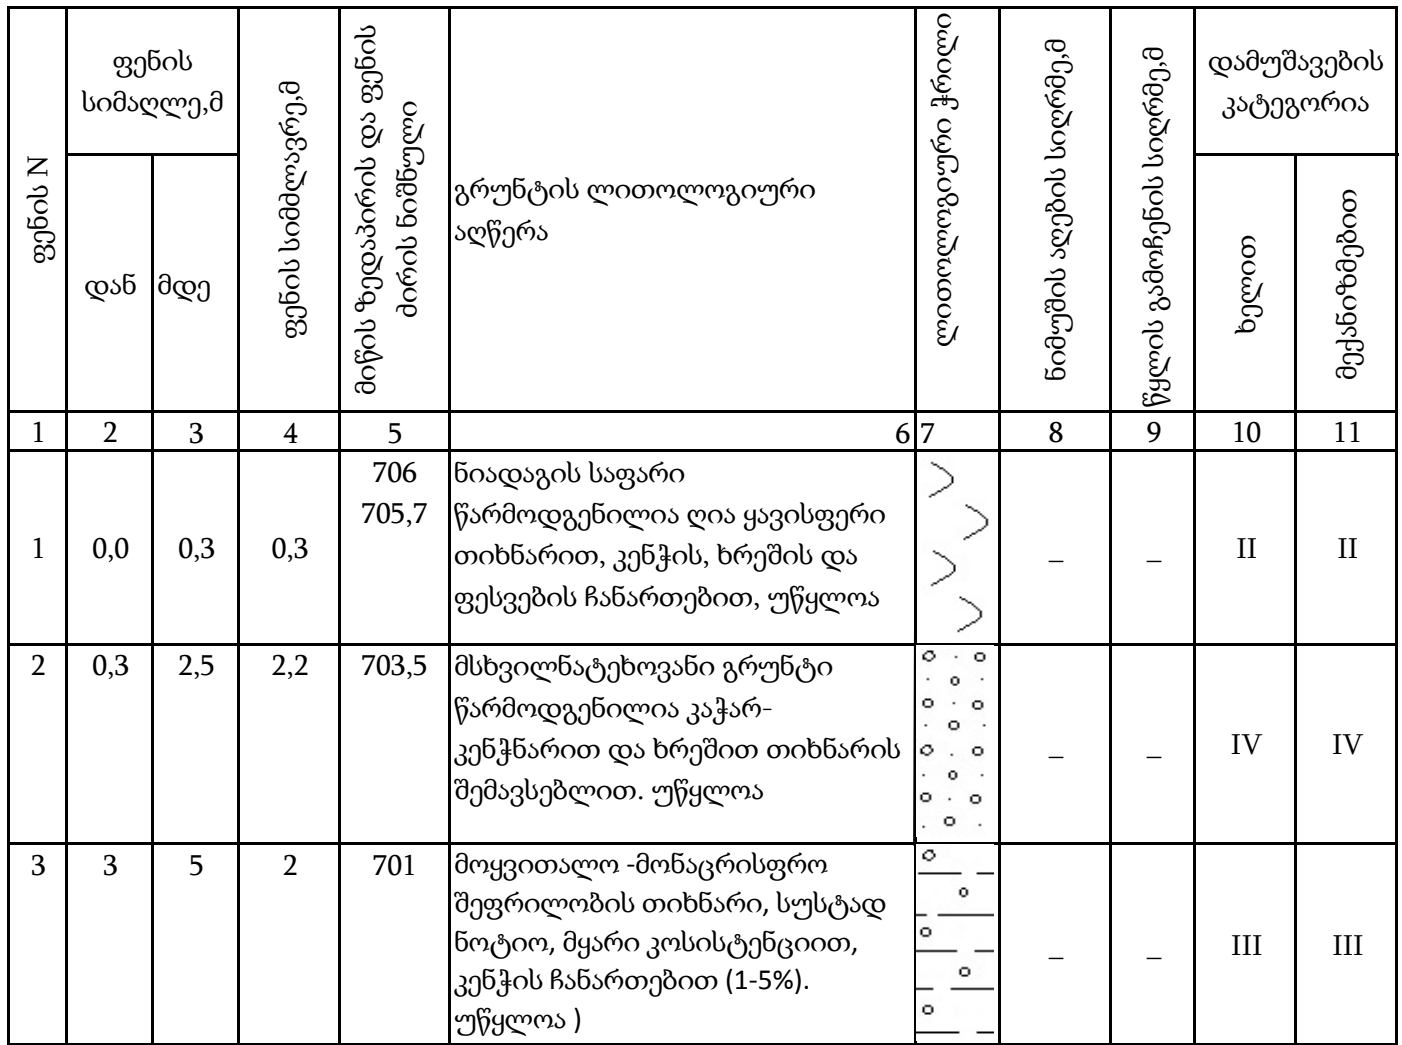 ფენის N
ფენის
სიმაღლე,მ
დან
მდე
ფენის სიმძლავრე,მ
მიწის ზედაპირის და ფენის
ძირის ნიშნული
გრუნტის ლითოლოგიური
აღწერა
ლითოლოგიური ჭრილი
ნიმუშის აღების სიღრმე,მ
წყლის გამოჩენის სიღრმე,მ
დამუშავების
კატეგორია
ხელით
მექანიზმებით
1 2 3 4 5 6 7 8 9 10 11
1 0,0 0,3 0,3
706
705,7
ნიადაგის საფარი
წარმოდგენილია ღია ყავისფერი
თიხნარით, კენჭის, ხრეშის და
ფესვების ჩანართებით, უწყლოა
– – II II
2 0,3 2,5 2,2 703,5
მსხვილნატეხოვანი გრუნტი
წარმოდგენილია კაჭარ-
კენჭნარით და ხრეშით თიხნარის
შემავსებლით. უწყლოა
– – IV IV
3 3 5 2 701
მოყვითალო -მონაცრისფრო
შეფრილობის თიხნარი, სუსტად
ნოტიო, მყარი კოსისტენციით,
კენჭის ჩანართებით (1-5%).
უწყლოა )
– – III III